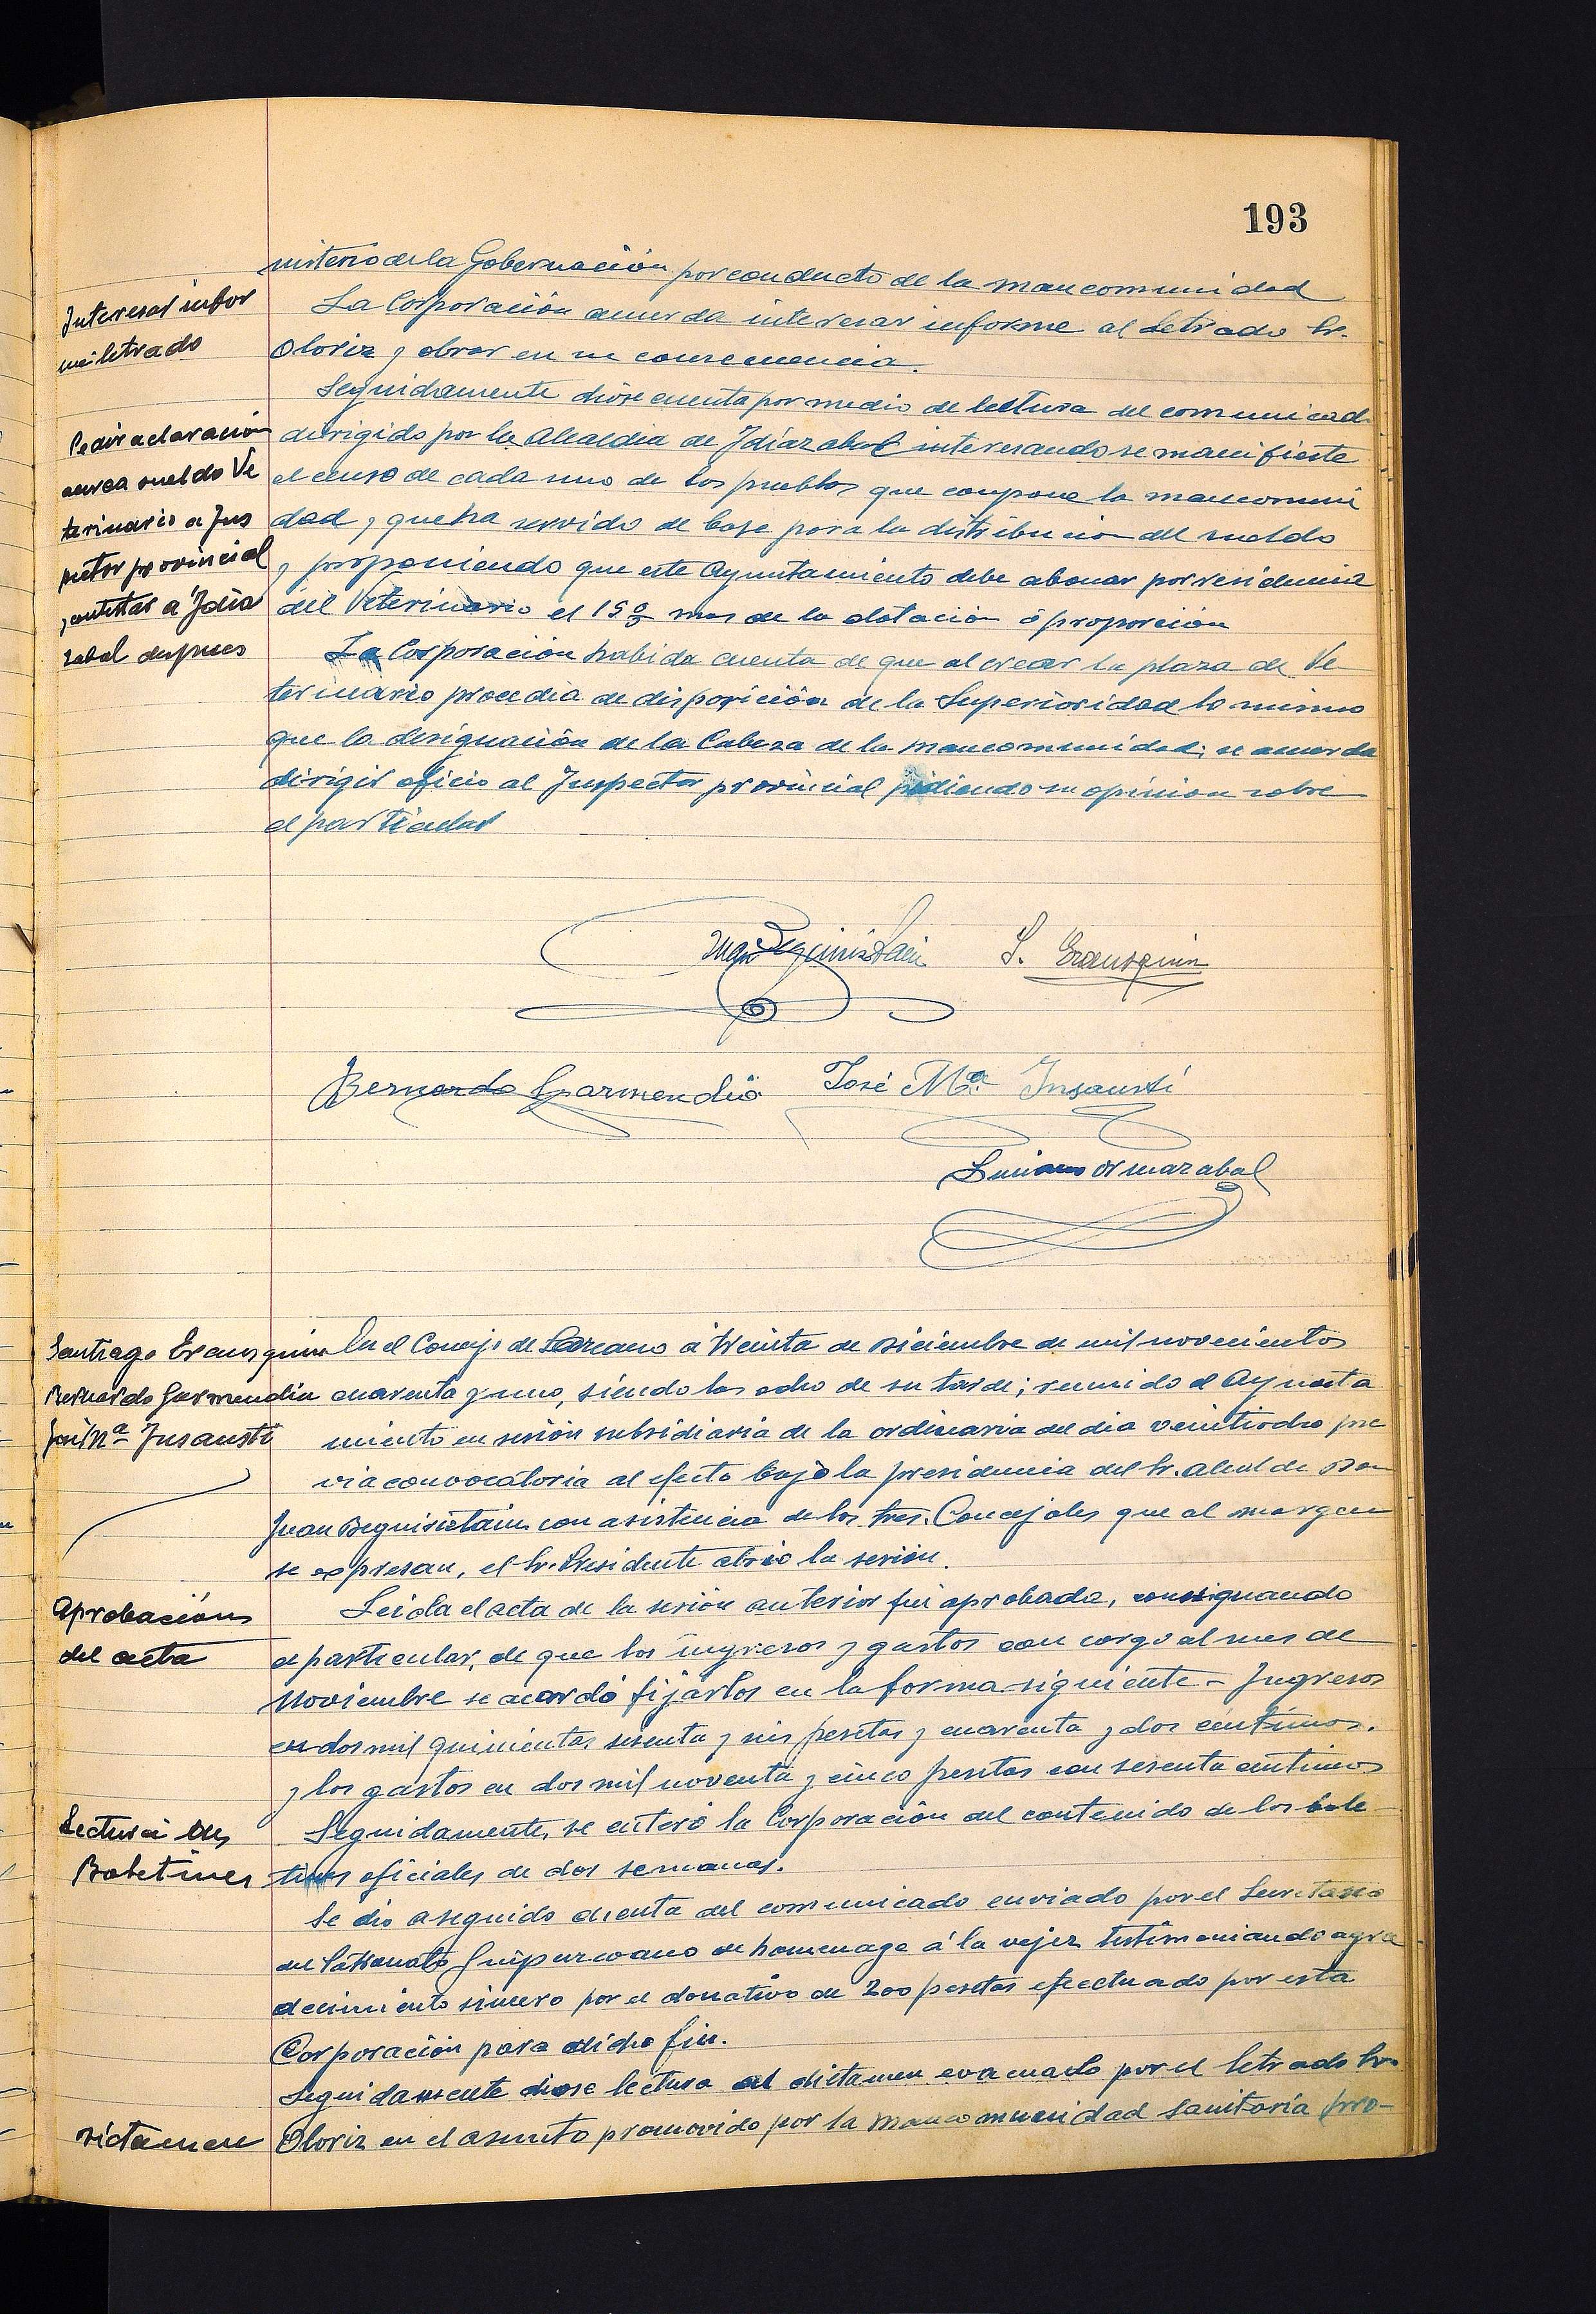 193
nisterio de la Gobernación por conducto de la mancomunidad
Interesar infor
me letrado
La Corporación acuerda interesar informe al Letrado Sr.
Oloriz y obrar en su consecuencia.
Seguidamente dióse cuenta por medio de lectura del comunicad
Pedir aclaración
acerca sueldo Ve
terinario a Ins
pector provincial
y contestar a Idia
zabal despues
dirigido por la Alcaldia de Idiazabal interesando se manifieste
el censo de cada uno de los pueblos que compone la mancomuni
dad y que ha servido de base para la distribucion del sueldo
y proponiendo que este Ayuntamiento debe abonar por residencia
del Veterinario el 15 % mas de la dotación ó proporción
La Corporación habida cuenta de que al crear la plaza de Ve
terinario procedia de disposición de la Superioridad lo mismo
que la designación de la Cabeza de la mancomunidad; se acuerda
dirigir oficio al Inspector provincial pidiendo su opinion sobre
el particular
Juan Beguiristain S. Erausquin
Bernardo Garmendia José Mª Insausti
Luciano Ormazabal
Santiago Erausquin
Bernardo Garmendia
José Mª Insausti
En el Concejo de Lazcano á treinta de Diciembre de mil novecientos
cuarenta y uno, siendo las ocho de su tarde; reunido el Ayunta
miento en sesión subsidiaria de la ordinaria del dia veintiocho pre
via convocatoria al efecto bajo la presidencia del Sr. Alcalde Don
Juan Beguiristain con asistencia de los tres Concejales que al margen
se expresan, el Sr. Presidente abrió la sesión.
Aprobación
del acta
Leida el acta de la sesión anterior fué aprobada, consignando
el particular, de que los ingresos y gastos con cargo al mes de
Noviembre se acordó fijarlos en la forma siguiente - Ingresos
en dos mil quinientas sesenta y seis pesetas y cuarenta y dos centimos.
y los gastos en dos mil noventa y cinco pesetas con sesenta centimos
Lectura
Boletines
Seguidamente, se enteró la Corporación del contenido de los bole-
tines oficiales de dos semanas.
Se dio aseguido cuenta del comunicado enviado por el Secretario
del Patronato Guipuzcoano de homenage á la vejez testimoniando agra
decimiento sincero por el donativo de 200 pesetas efectuado por esta
Corporación para dicho fin.
Seguidamente diose lectura al dictamen evacuado por el letrado Sr.
Dictamen
Oloriz en el asunto promovido por la mancomunidad sanitaria pro-